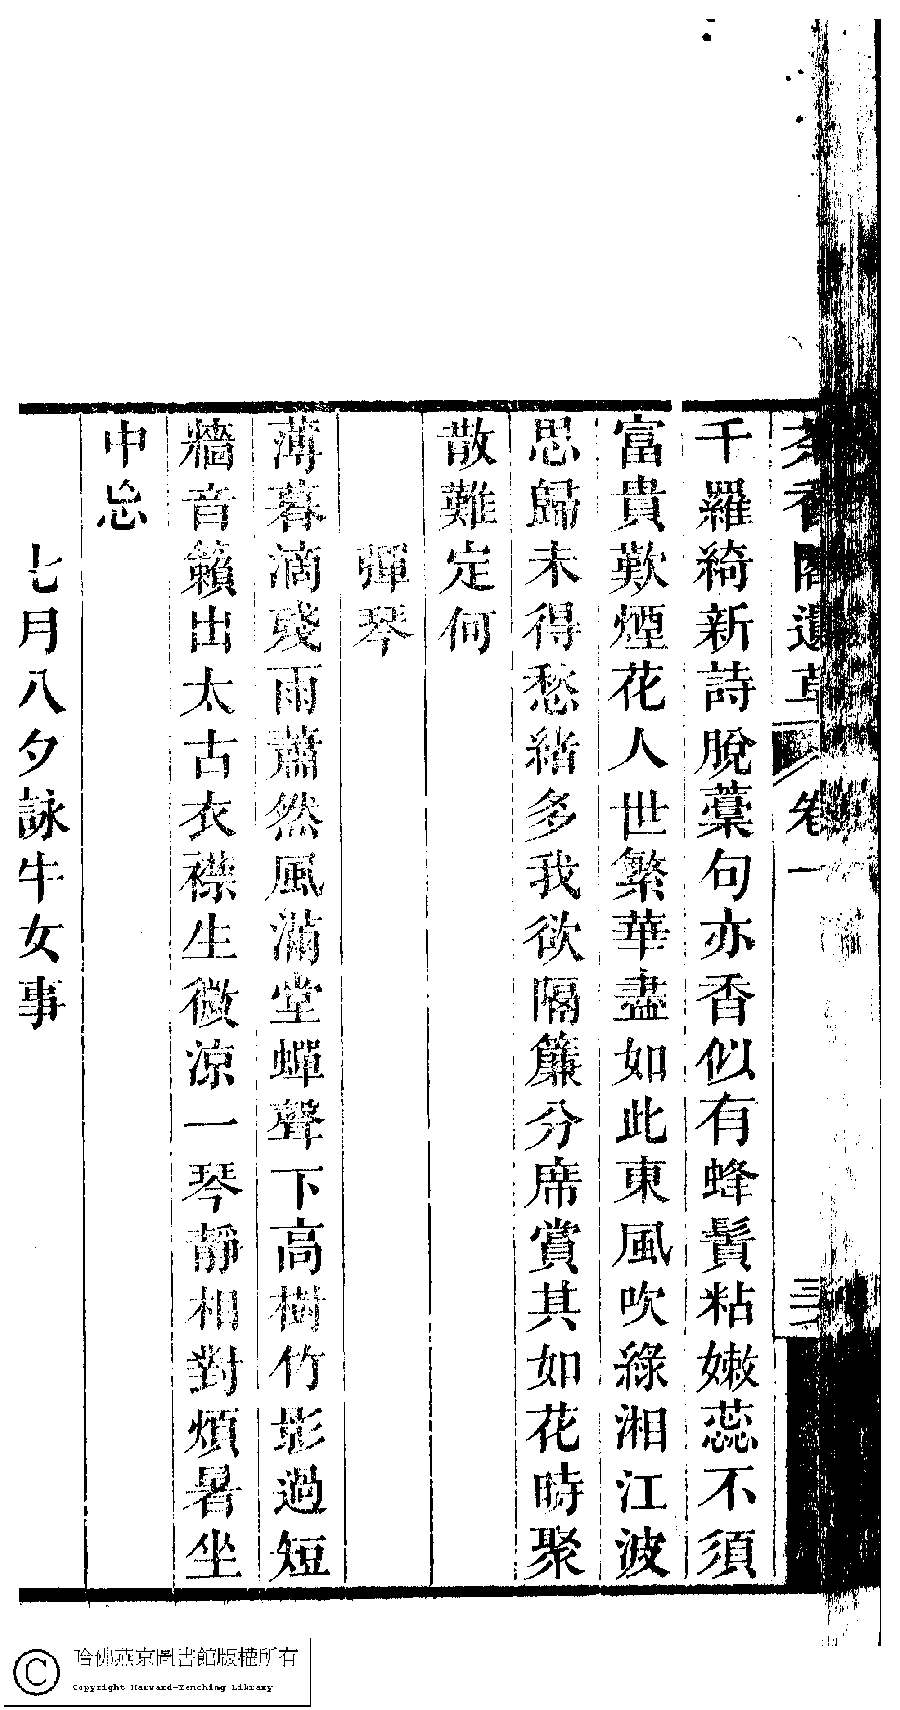 茶香閣遺草 卷一 三
千羅綺新詩脫藁句亦香似有蜂鬚粘嫩蕊不須
富貴歎煙花人世繁華盡如此東風吹綠湘江波
思歸未得愁緒多我欲隔簾分席賞其如花時聚
散難定何
彈琴
薄暮滴殘雨蕭然風滿堂蟬聲下高樹竹影過短
牆音籟出太古衣襟生微涼一琴靜相對煩暑坐
中忘
七月八夕詠牛女事
哈佛燕京圖書館版權所有
Copyright Harvard-Yenching Library